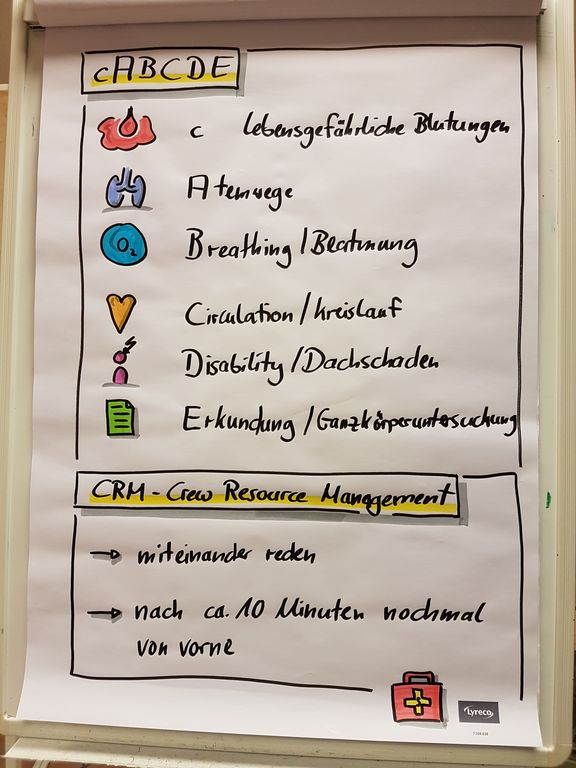 cABCDE
c lebensgefährliche Blutungen
Atemwege
O₂ Breathing / Beatmung
Circulation / Kreislauf
Disability / Dachschaden
Erkundung / Ganzkörperuntersuchung
CRM - Crew Resource Management
→ miteinander reden
→ nach ca. 10 Minuten nochmal
von vorne
Lyreco